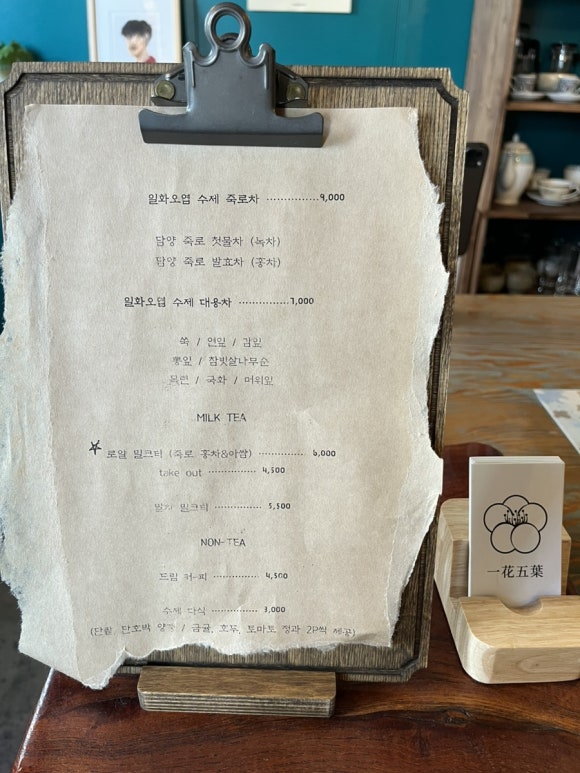 일화오엽 수제 죽로차 ·············· 9,000
담양 죽로 첫물차 (녹차)
담양 죽로 발효차 (홍차)
일화오엽 수제 대용차 ·············· 7,000
쑥 / 연잎 / 감잎
뽕잎 / 참빗살나무순
목련 / 국화 / 머위잎
MILK TEA
로얄 밀크티 (죽로 홍차&아쌈) ·············· 6,000
take out ·············· 4,500
말차 밀크티 ·············· 5,500
NON-TEA
드립 커피 ·············· 4,500
수제 다식 ·············· 3,000
(단팥, 단호박 양갱 / 금귤, 호두, 토마토 정과 2P씩 제공)
一花五葉